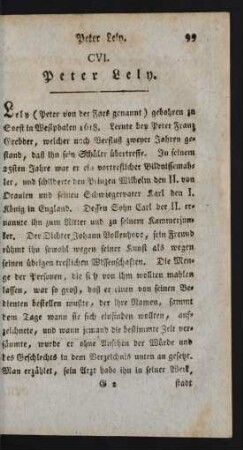 Peter Lely. 99
CVI.
Peter Lely.
Lely (Peter von der Faes genannt) gebohren zu
Soest in Westphalen 1618. Lernte bey Peter Franz
Grebber, welcher nach Verfluß zweyer Jahren ge-
stand, daß ihn sein Schüler übertreffe. In seinem
25sten Jahre war er ein vortreflicher Bildnißmah-
ler, und schilderte den Prinzen Wilhelm den II. von
Oranien und seinen Schwiegervater Karl den I.
König in England. Dessen Sohn Carl der II. er-
nannte ihn zum Ritter und zu seinem Kammerjun-
ker. Der Dichter Johann Vollenhove, sein Freund
rühmt ihn sowohl wegen seiner Kunst als wegen
seinen übrigen trefflichen Wissenschaften. Die Men-
ge der Personen, die sich von ihm wollten mahlen
lassen, war so groß, daß er einen von seinen Be-
dienten bestellen mußte, der ihre Namen, sammt
dem Tage wann sie sich einfinden wollten, auf-
zeichnete, und wann jemand die bestimmte Zeit ver-
säumte, wurde er ohne Ansehen der Würde und
des Geschlechts in dem Verzeichnis unten an gesetzt.
Man erzählet, sein Arzt habe ihn in seiner Werk,
G 2 stadt